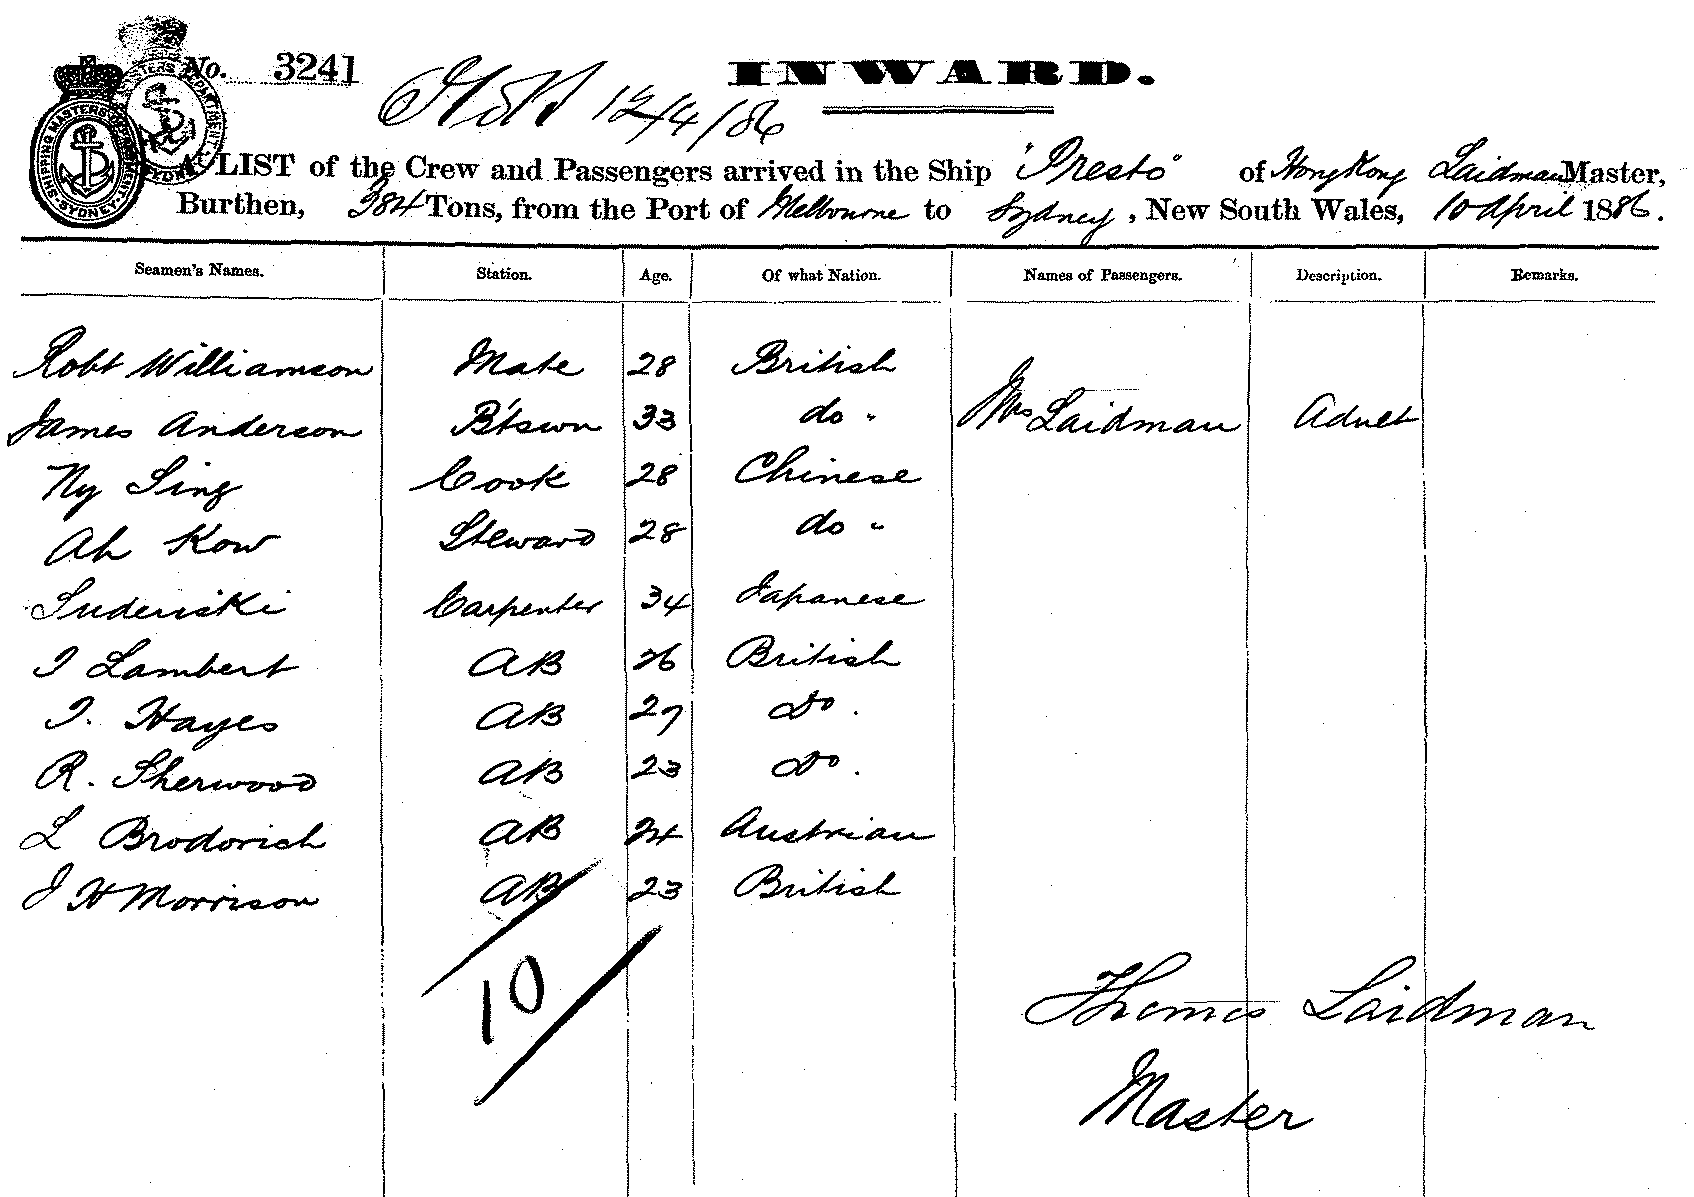 No. 3241
INWARD.
12/4/86
A LIST of the Crew and Passengers arrived in the Ship "Presto" of Hong Kong Laidman Master,
Burthen, 384 Tons, from the Port of Melbourne to Sydney, New South Wales, 10 April 1886.
SHIPPING MASTERS DEPARTMENT SYDNEY
Seamen's Names. Station. Age. Of what Nation. Names of Passengers. Description. Remarks.
Robt Williamson Mate 28 British
James Anderson B'tswn 33 do " Mrs Laidman Adult
Ny Sing Cook 28 Chinese
Ah Kow Steward 28 do "
Carpenter 34 Japanese
Lambert AB 26 British
Hayes AB 27 Do.
R. Sherwood AB 23 Do.
L Brodorich AB 24 Austrian
J H Morrison AB 23 British
10
Thomas Laidman
Master